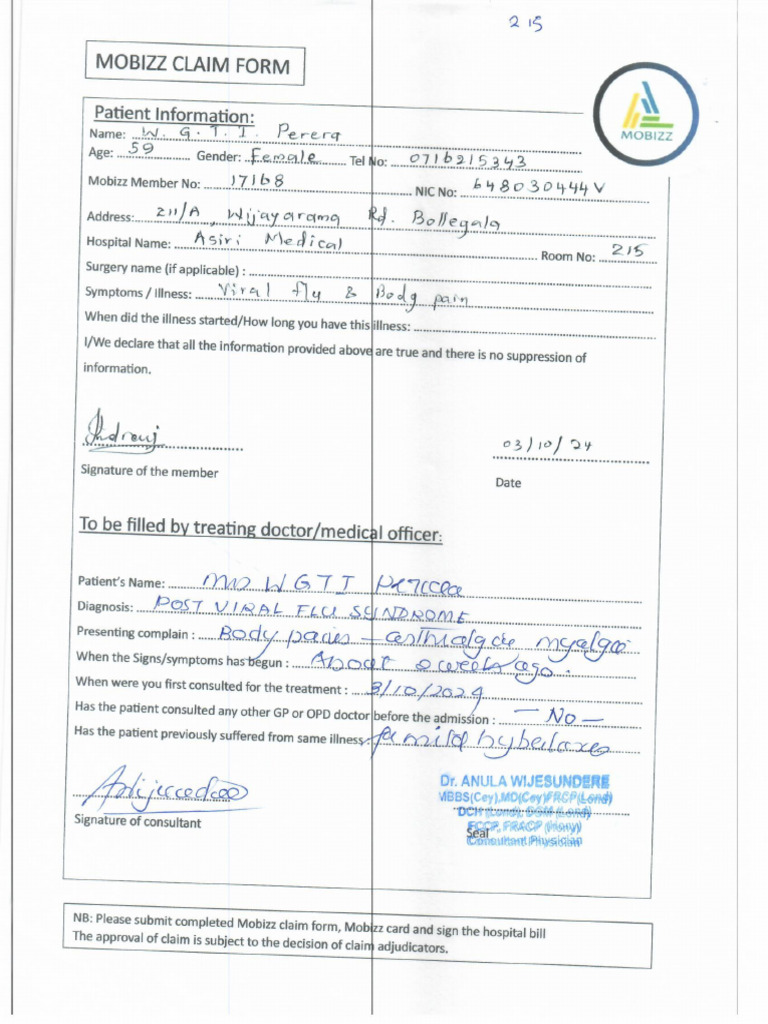 215
MOBIZZ CLAIM FORM
MOBIZZ
Patient Information:
Name: W. G. T. I. Perera
Age: 59 Gender: Female Tel No: 0716215343
Mobizz Member No: 17168 NIC No: 648030444V
Address: 211/A, Wijayarama Rd. Bollegala
Hospital Name: Asiri Medical Room No: 215
Surgery name (if applicable) :
Symptoms / Illness: Viral fly & Body pain
When did the illness started/How long you have this illness:
I/We declare that all the information provided above are true and there is no suppression of
information.
03/10/24
Signature of the member
Date
To be filled by treating doctor/medical officer:
Patient's Name: WGTI
Diagnosis: POST VIRAL FLU SYNDROME
Presenting complain : Body pains –
When the Signs/symptoms has begun : About ago.
When were you first consulted for the treatment : 3/10/2024
Has the patient consulted any other GP or OPD doctor before the admission : – No –
Has the patient previously suffered from same illness:
Dr. ANULA WIJESUNDERE
MBBS(Cey),MD(Cey)FRCP(Lond)
DCH (Lond), DGM (Lond)
FCCP, FRACP (Hony)
Seal
Consultant Physician
Signature of consultant
NB: Please submit completed Mobizz claim form, Mobizz card and sign the hospital bill
The approval of claim is subject to the decision of claim adjudicators.